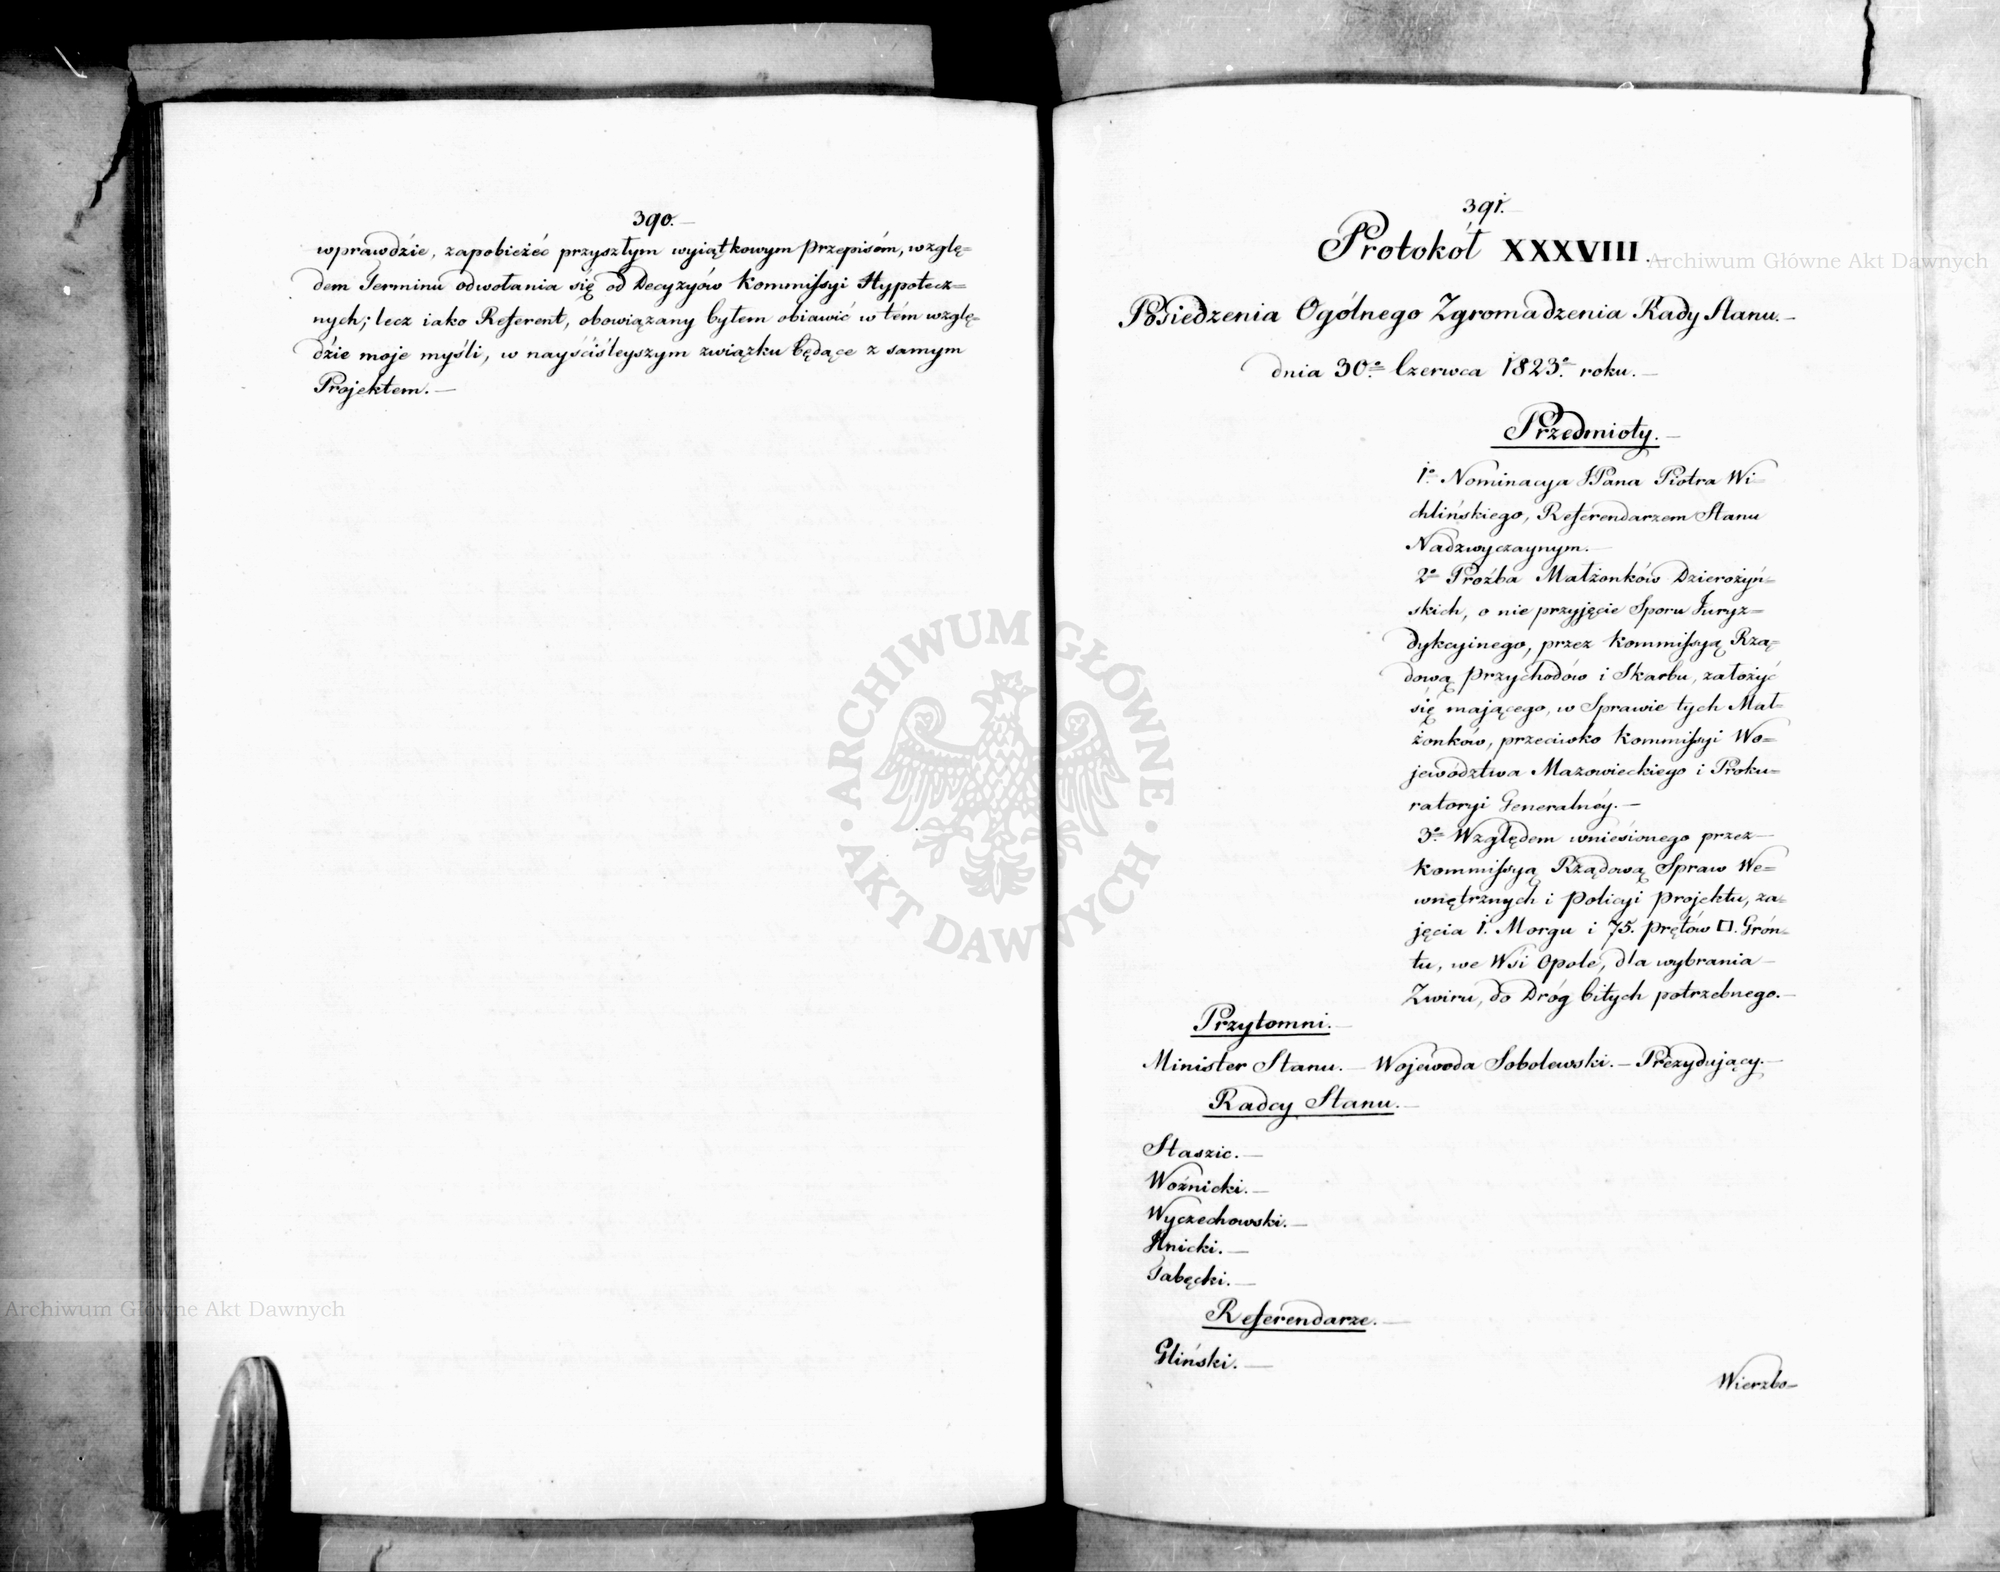 390.
wprawdzie, zapobieżeć przyszłym wyiątkowym przepisóm, wzglę=
dem Terminu odwołania się od Decyzyów Kommissyi Hypotecz=
nych; lecz iako Referent, obowiązany byłem obiawić w tém wzglę=
dzie moje myśli, w nayściśleyszym związku będące z samym
Projektem.—
391.
Protokół XXXVIII.
Posiedzenia Ogólnego Zgromadzenia Rady Stanu.—
dnia 30.º Czerwca 1823.º roku.—
Przedmioty.—
1.º Nominacya JPana Piotra Wi=
chlińskiego, Referendarzem Stanu
Nadzwyczaynym.—
2.º Proźba Małżonków Dzierożyń=
skich, o nie przyjęcie Sporu Juryz=
dykcyinego, przez Kommissyą Rzą=
dową Przychodów i Skarbu, założyć
się mającego, w Sprawie tych Mał=
żonków, przeciwko Kommissyi Wo=
jewództwa Mazowieckiego i Proku=
ratoryi Generalnéy.—
3.º Względem wniesionego przez
Kommissyą Rządową Spraw We=
wnętrznych i Policyi Projektu, za=
jęcia 1. Morgu i 75. prętów □. Grón=
tu, we Wsi Opole, dla wybrania
Zwiru, do Dróg bitych potrzebnego.—
Przytomni.—
Minister Stanu.— Wojewoda Sobolewski.— Prezydujący.—
Radcy Stanu.—
Staszic.—
Woźnicki.—
Wyczechowski.—
Jłnicki.—
Tabęcki.—
Referendarze.—
Gliński.—
Wierzbo=
Archiwum Główne Akt Dawnych
ARCHIWUM GŁÓWNE
AKT DAWNYCH
Archiwum Główne Akt Dawnych